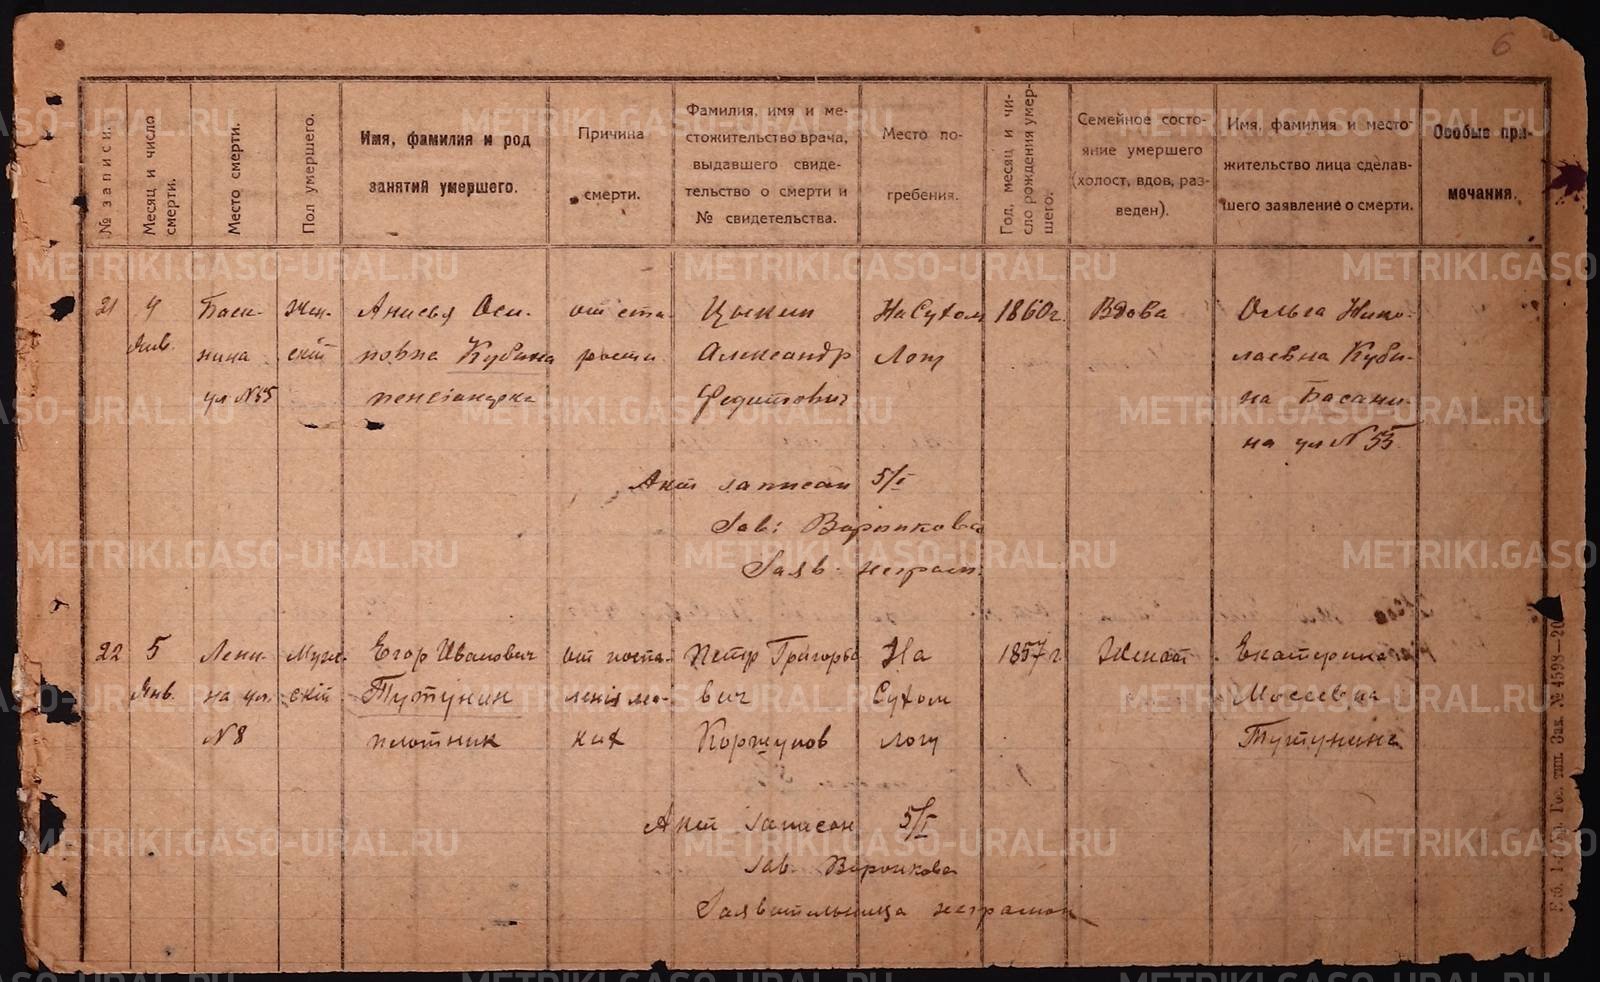 6
№ записи.
Месяц и число смерти.
Место смерти.
Пол умершего.
Имя, фамилия и род
занятий умершего.
Причина
смерти.
Фамилия, имя и ме-
стожительство врача,
выдавшего свиде-
тельство о смерти и
№ свидетельства.
Место по-
гребения.
Год, месяц и чи-
сло рождения умер-
шего.
Семейное состо-
яние умершего
(холост, вдов, раз-
веден).
Имя, фамилия и место-
жительство лица сделав-
шего заявление о смерти.
Особые при-
мечания.
21
4
Янв.
Баси-
нина
ул № 55
Жен-
скій
Анисья Оси-
повна Кубина
пенсіонерка
от ста-
рости
Цыкин
Александр
Федитович
На Сухом
Логу
1860 г.
Вдова
Ольга Нико-
лаевна Куби-
на Басани-
на ул № 55
Акт записан 5/I
Зав: Воронкова
Заяв. неграм.
22
5
Янв.
Лени-
на ул.
№ 8
Муж-
скій
Егор Иванович
Тутунин
плотник
от воспа-
ленія ле-
ких
Петр Григорье
вич
Коржунов
На
Сухом
логу
1857 г
Женат
Екатерина
Моссевна
Тутунина
Акт записан 5/I
Зав. Воронкова
Заявительница неграмот
Гос. тип. Зак. № 4598—20
METRIKI.GASO-URAL.RU